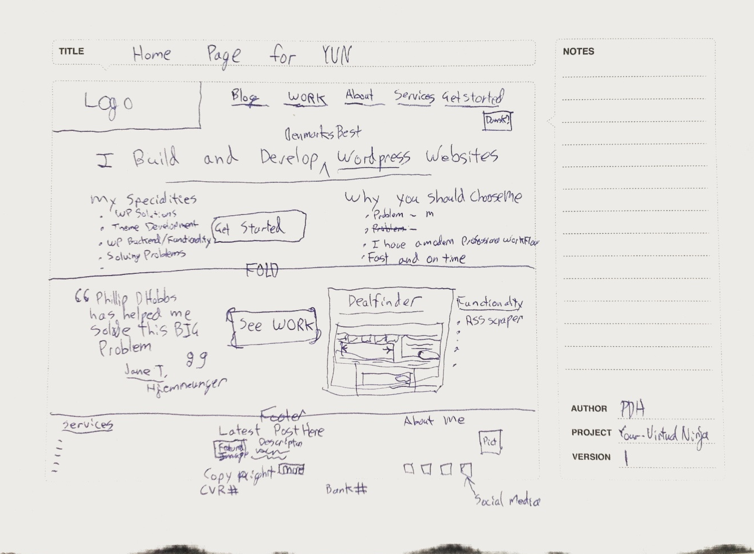 TITLE Home Page for YUN
NOTES
Logo
Blog WORK About Services Get Started
Denmarks Best
I Build and Develop Wordpress Websites
My Specialities
WP Solutions
Theme Development
WP Backend/Functionality
Solving Problems
Get Started
Why you should Choose Me
Problem ~ m
Problem ~
I have a modern Professional Workflow
Fast and on time
FOLD
Phillip D Hobbs
has helped me
Solve this BIG
Problem
Jane T.
SEE WORK
Dealfinder
Functionality
ASS Scraper
Footer
Services
Latest Post Here
Feature
Image
Description
About Me
Pic
Copy Right
CVR#
Bank#
Social Media
AUTHOR PDH
PROJECT Your-Virtual Ninja
VERSION 1